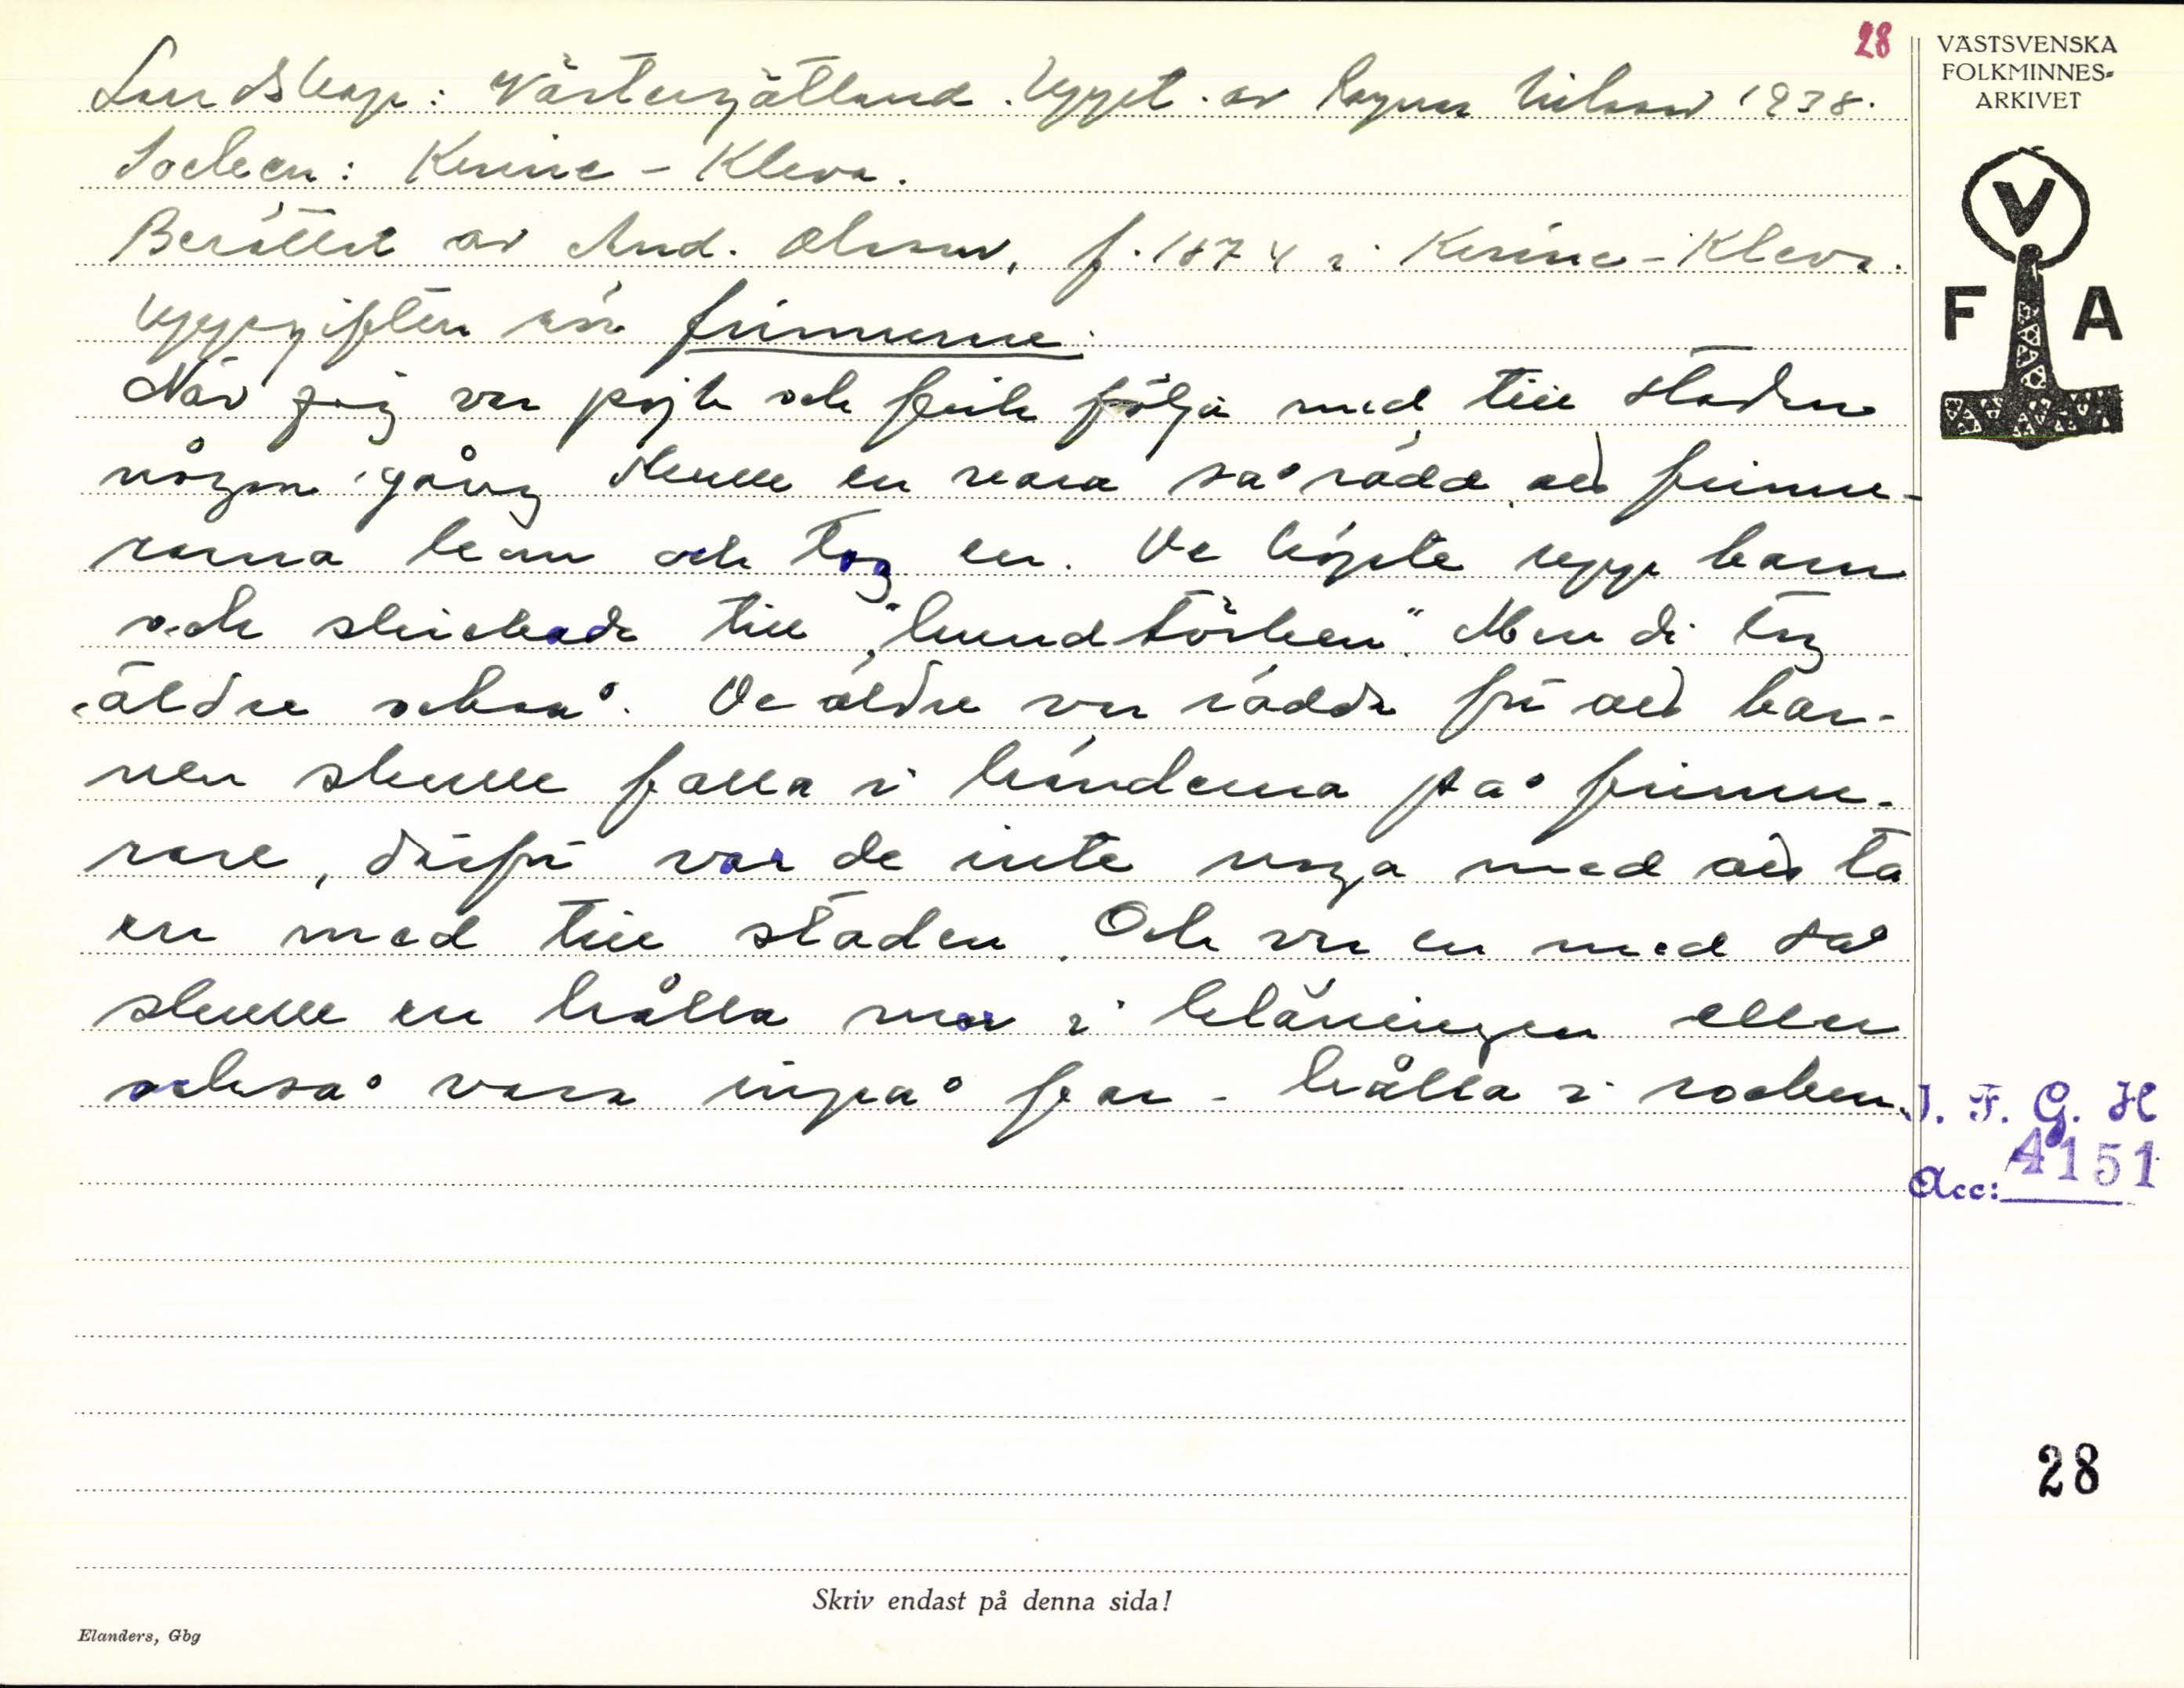 28
VÄSTSVENSKA
FOLKMINNES-
ARKIVET
V
F A
Landskap: Västergötland. Uppt. av Ragnar Nilsson 1938.
Socken: Kinne-Kleva.
Berättat av And. Olsson, f. 1874 i Kinne-Kleva.
Uppgiften rör finnarne.
När jag var pojk och fick följa med till staden
någon gång skulle en vara så rädd att finna-
rarna kom och tog en. De köpte upp barn
och skickade till "hundtörken". Men di tog
äldre också. De äldre var rädda för att bar-
nen skulle falla i händerna på finna-
rare, därför var de inte noga med att ta
en med till staden. Och var en med så
skulle en hålla mor i klänningen eller
också vara inpå far - hålla i rocken.
I. F. G. H
Acc: 4151
28
Skriv endast på denna sida!
Elanders, Gbg